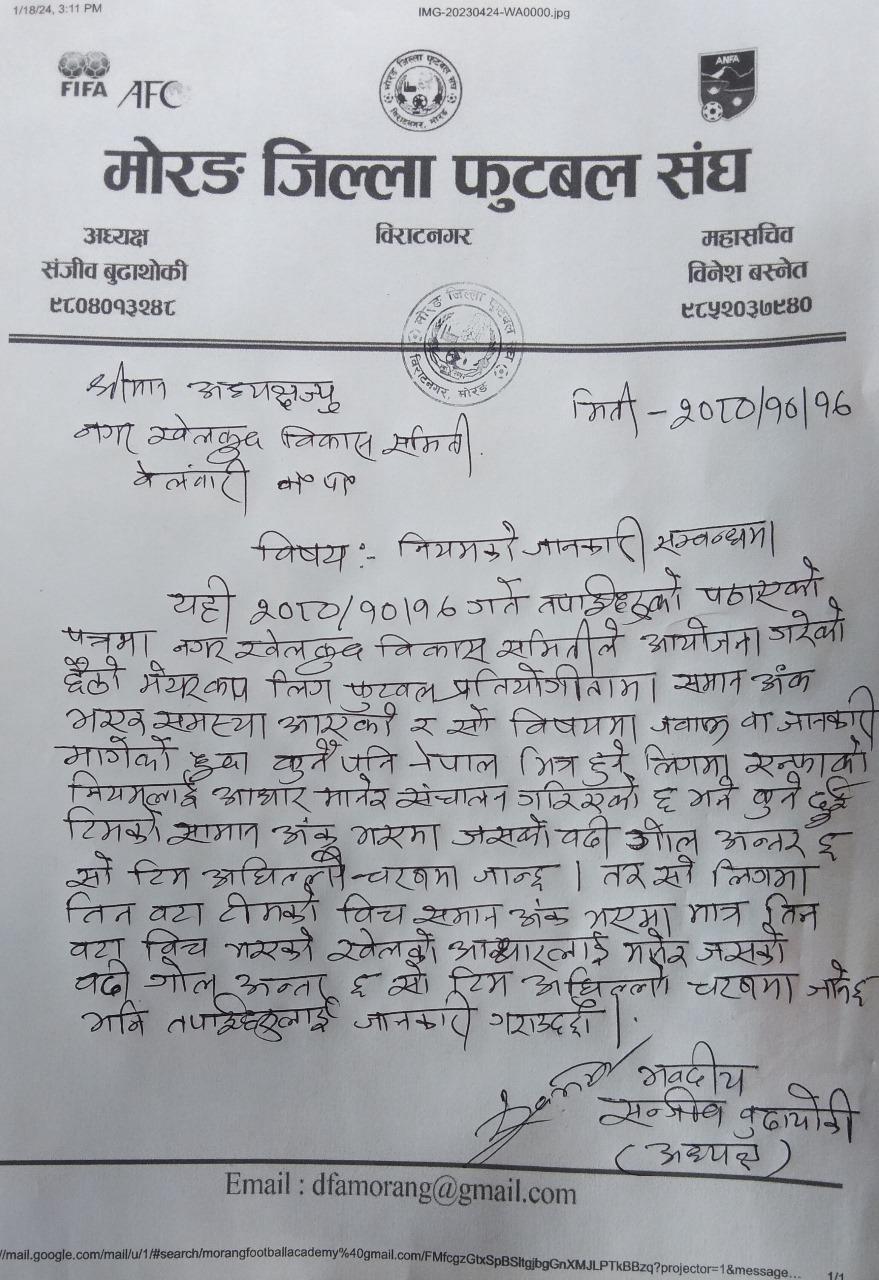 1/18/24, 3:11 PM
IMG-20230424-WA0000.jpg
FIFA
AFC
ANFA
मोरङ जिल्ला फुटबल संघ
विराटनगर, मोरङ
मोरङ जिल्ला फुटबल संघ
अध्यक्ष
संजीव बुढाथोकी
९८०४०१३२४८
विराटनगर
महासचिव
विनेश बस्नेत
९८५२०३७९४०
मोरङ जिल्ला फुटबल संघ
विराटनगर, मोरङ
श्रीमान अध्यक्षज्यु
मिती - २०८०/१०/१६
नगर खेलकुद विकास समिती.
वेलवारी न॰ पा॰
विषय :- नियमको जानकारी सम्वन्धमा
यही २०८०/१०/१६ गते तपाईहरुको पठाएको
पत्रमा नगर खेलकुद विकास समितीले आयोजना गरेको
छैठौ मेयरकप लिग फुटवल प्रतियोगीतामा समान अंक
भएर समस्या आएको र सो विषयमा जवाफ वा जानकारी
मागेको हुदा कुनै पनि नेपाल भित्र हुने लिगमा एन्फाको
नियमलाई आधार मानेर संचालन गरिएको छ भने कुनै दुई
टिमको सामान अंक भएमा जसको वढी गोल अन्तर छ
सो टिम अघिल्लो चरणमा जान्छ । तर सो लिगमा
तिन वटा टीमको विच समान अंक भएमा मात्र तिन
वटा विच भएको खेलको आधारलाई मानेर जसको
वढी गोल अन्तर छ सो टिम अघिल्लो चरणमा जानेछ
भनि तपाईहरुलाई जानकारी गराउदछौ ।
भवदीय
सन्जीव वुढाथोकी
(अध्यक्ष)
Email : dfamorang@gmail.com
//mail.google.com/mail/u/1/#search/morangfootballacademy%40gmail.com/FMfcgzGtxSpBSltgjbgGnXMJLPTkBBzq?projector=1&message...
1/1